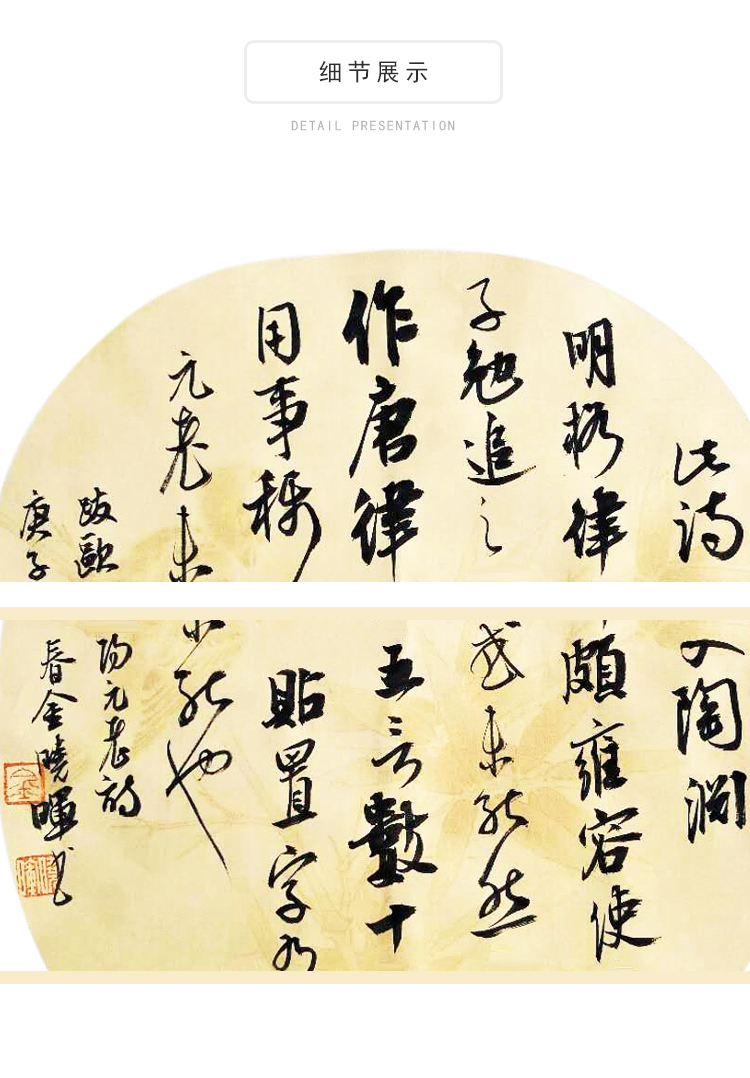 细节展示
DETAIL PRESENTATION
此诗
明格律
子勉追之
作唐律
用事稳
元老未
跋歐
庚子
入陶渊
頗雍容使
或未能然
五言數十
貼置字
能也
阳元老诗
春金曉暉书